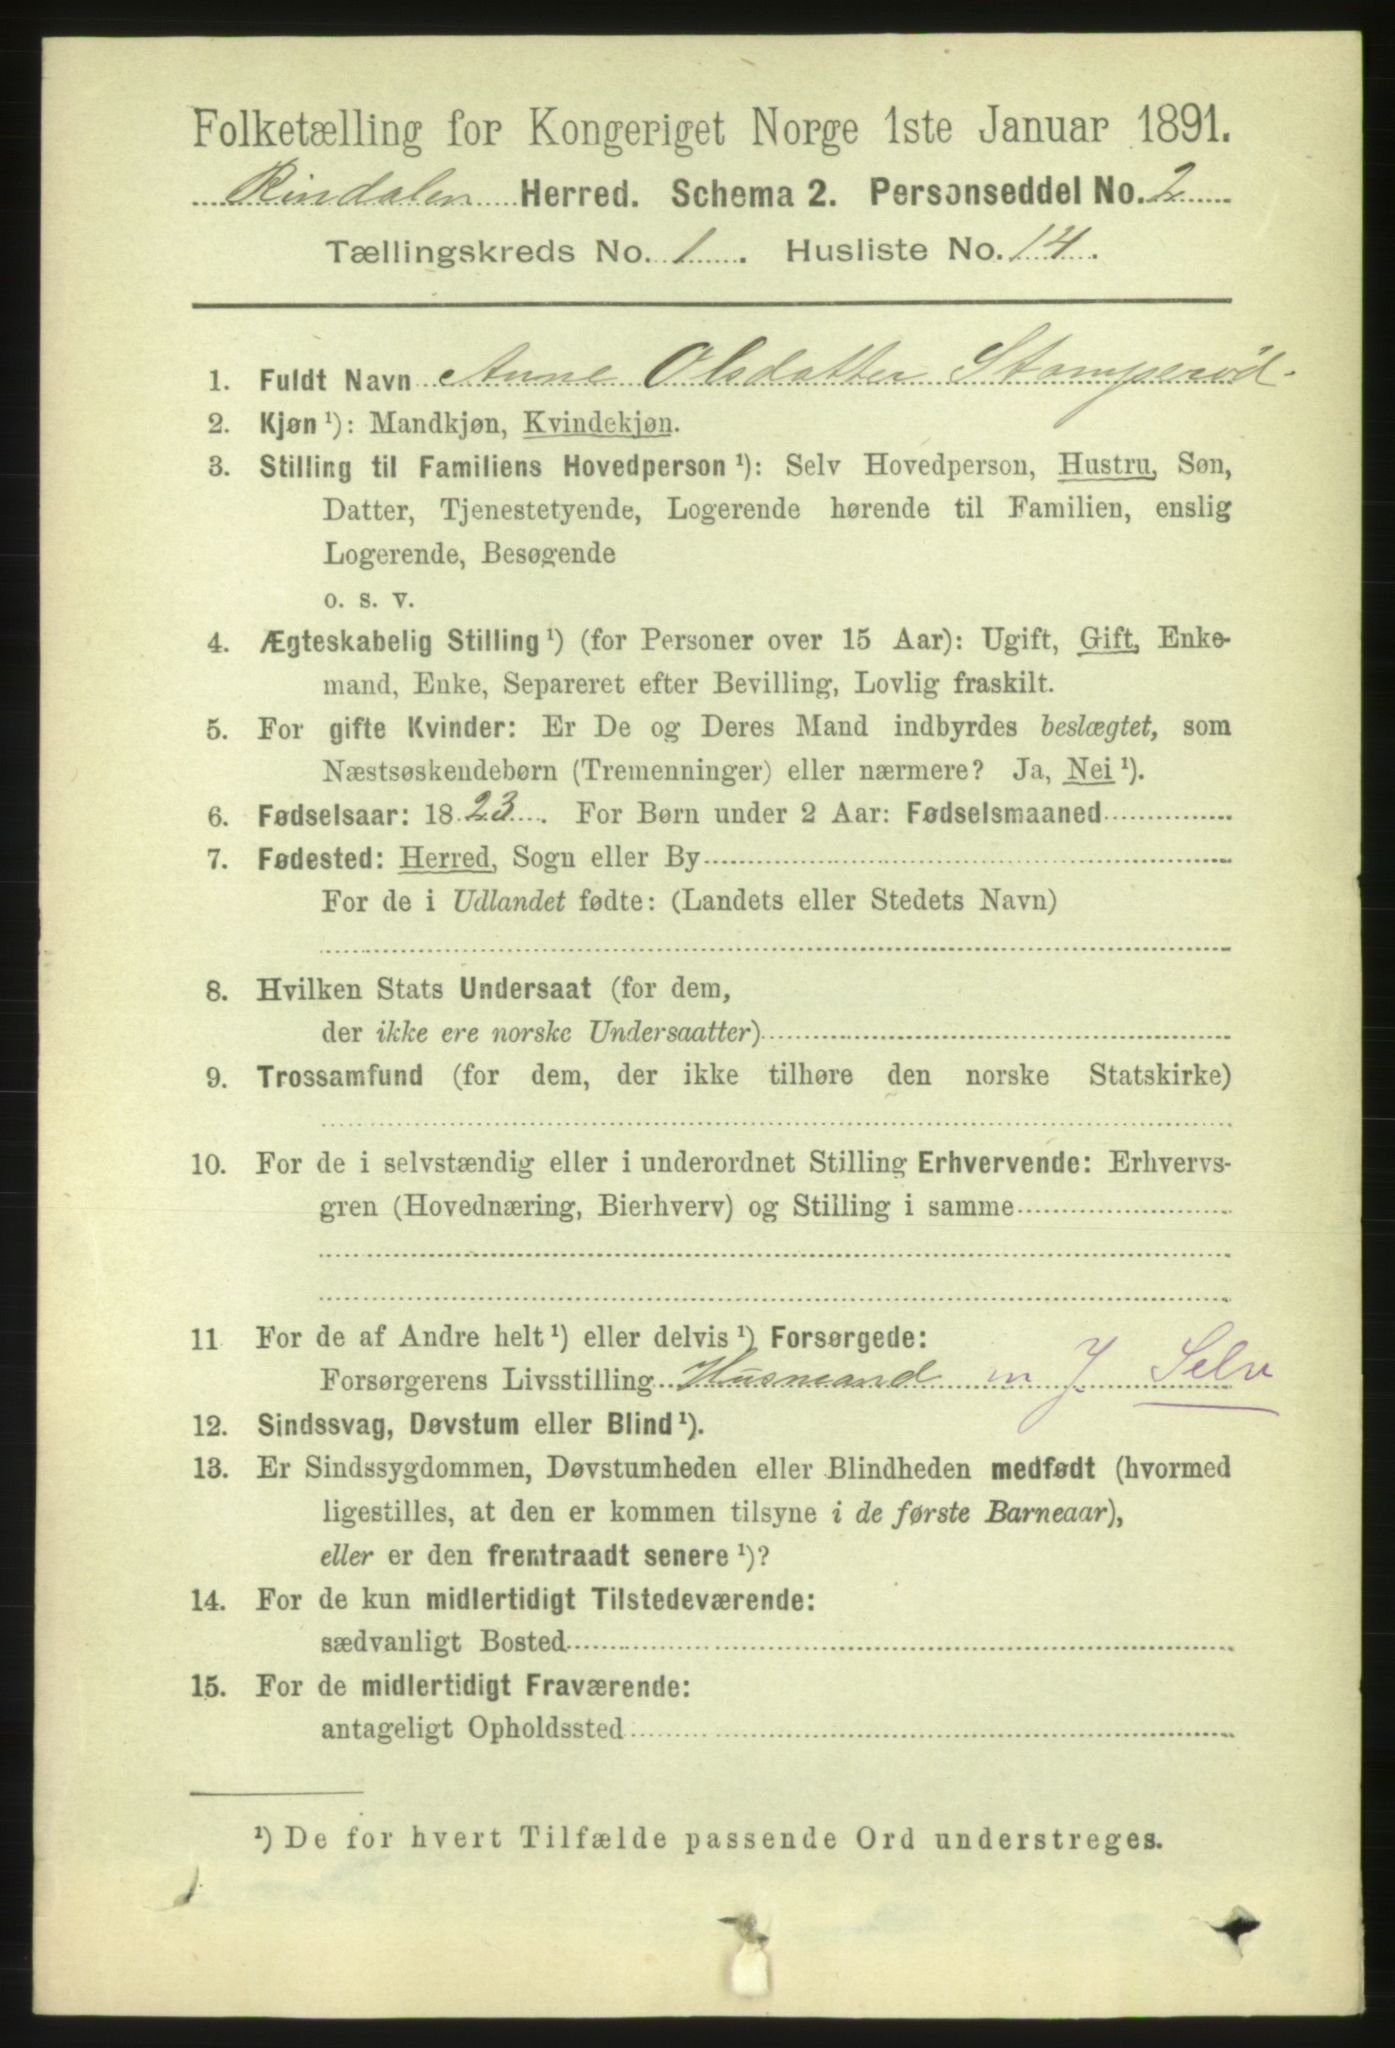 Folketælling for Kongeriget Norge 1ste Januar 1891.
Rindalen Herred. Schema 2. Personseddel No. 2
Tællingskreds No. 1. Husliste No. 14.
1. Fuldt Navn Anne Olsdatter Stamperød.
2. Kjøn ¹): Mandkjøn, Kvindekjøn.
3. Stilling til Familiens Hovedperson ¹): Selv Hovedperson, Hustru, Søn,
Datter, Tjenestetyende, Logerende hørende til Familien, enslig
Logerende, Besøgende
o. s. v.
4. Ægteskabelig Stilling ¹) (for Personer over 15 Aar): Ugift, Gift, Enke-
mand, Enke, Separeret efter Bevilling, Lovlig fraskilt.
5. For gifte Kvinder: Er De og Deres Mand indbyrdes beslægtet, som
Næstsøskendebørn (Tremenninger) eller nærmere? Ja, Nei ¹).
6. Fødselsaar: 1823. For Børn under 2 Aar: Fødselsmaaned
7. Fødested: Herred, Sogn eller By
For de i Udlandet fødte: (Landets eller Stedets Navn)
8. Hvilken Stats Undersaat (for dem,
der ikke ere norske Undersaatter)
9. Trossamfund (for dem, der ikke tilhøre den norske Statskirke)
10. For de i selvstændig eller i underordnet Stilling Erhvervende: Erhvervs-
gren (Hovednæring, Bierhverv) og Stilling i samme
11 For de af Andre helt ¹) eller delvis ¹) Forsørgede:
Forsørgerens Livsstilling Husmand m J. Selv
12. Sindssvag, Døvstum eller Blind ¹).
13. Er Sindssygdommen, Døvstumheden eller Blindheden medfødt (hvormed
ligestilles, at den er kommen tilsyne i de første Barneaar),
eller er den fremtraadt senere ¹)?
14. For de kun midlertidigt Tilstedeværende:
sædvanligt Bosted
15. For de midlertidigt Fraværende:
antageligt Opholdssted
¹) De for hvert Tilfælde passende Ord understreges.